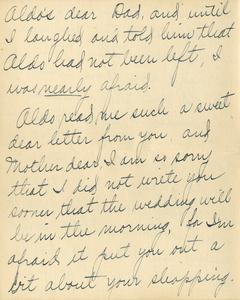 Aldo's dear Dad, and until
I laughed and told him that
Aldo had not been left, I
was nearly afraid.
Aldo read me such a sweet
dear letter from you, and
Mother dear, I am so sorry
that I did not wrete you
sooner that the wedding will
be in the morning, for I'm
afraid it put you out a
bit about your shopping.